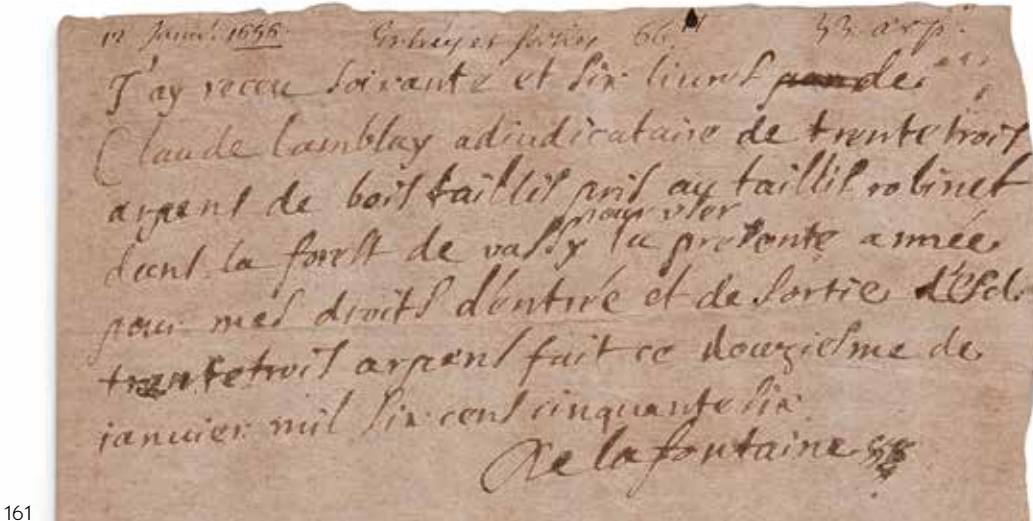 12 Janv. 1656. Entrée et sortie 66ᴸᴸ 33 arp.
J'ay receu soixante et six livres de
Claude Lamblay adiudicataire de trente trois
arpens de bois taillis pris au taillis robinet
dans la forest de vassy pour user la presente année
pour mes droits d'entrée et de sortie desd.
trente trois arpens fait ce douziesme de
ianvier mil six cens cinquante six.
De la fontaine
161